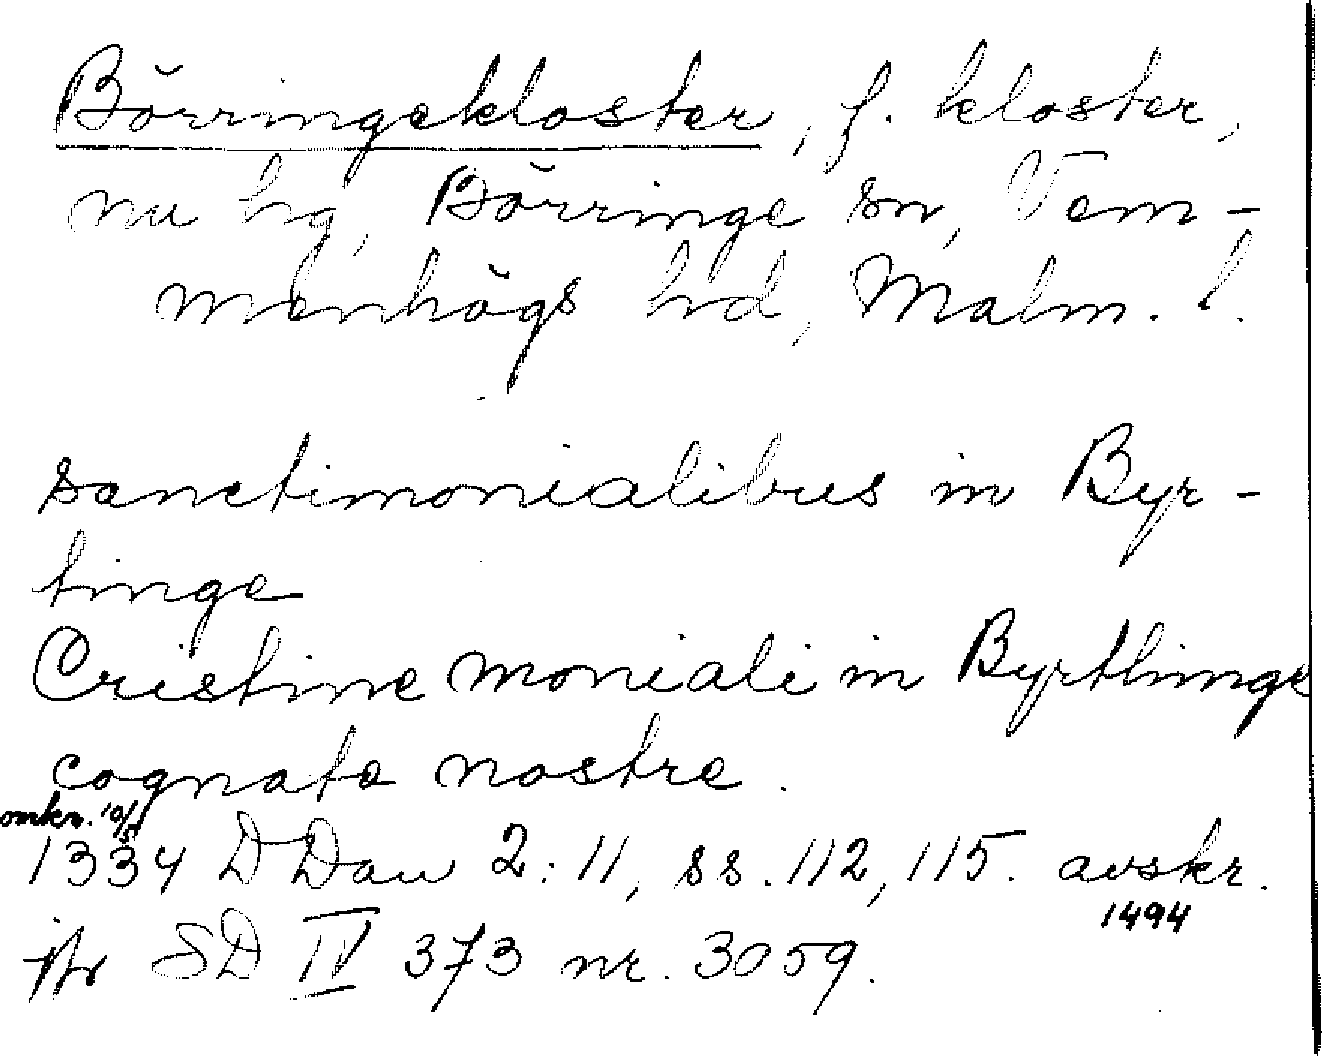 Börringekloster, f. kloster,
nu hg, Börringe sn, Vem-
menhögs hd, Malm. l.
sanctimonialibus in Byr-
tinge
Cristine moniali in Byrthinge
cognate nostre.
omkr. 10/5
1334 DDan 2:11, ss. 112, 115. avskr.
1494
jfr SD IV 373 nr. 3059.